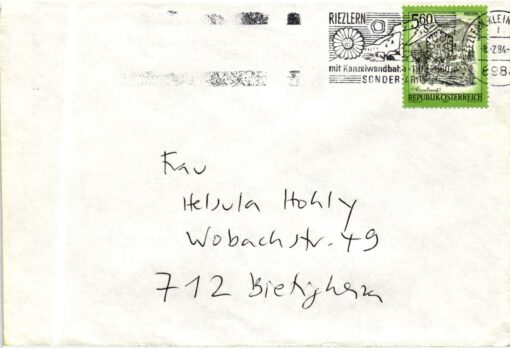 RIEZLERN
mit Kanzelwandbahn
SONDER
5.60
REPUBLIK ÖSTERREICH
-8.-2.84-
698
Frau
Helsula Hohly
Wobachstr. 49
712 Bietigheim